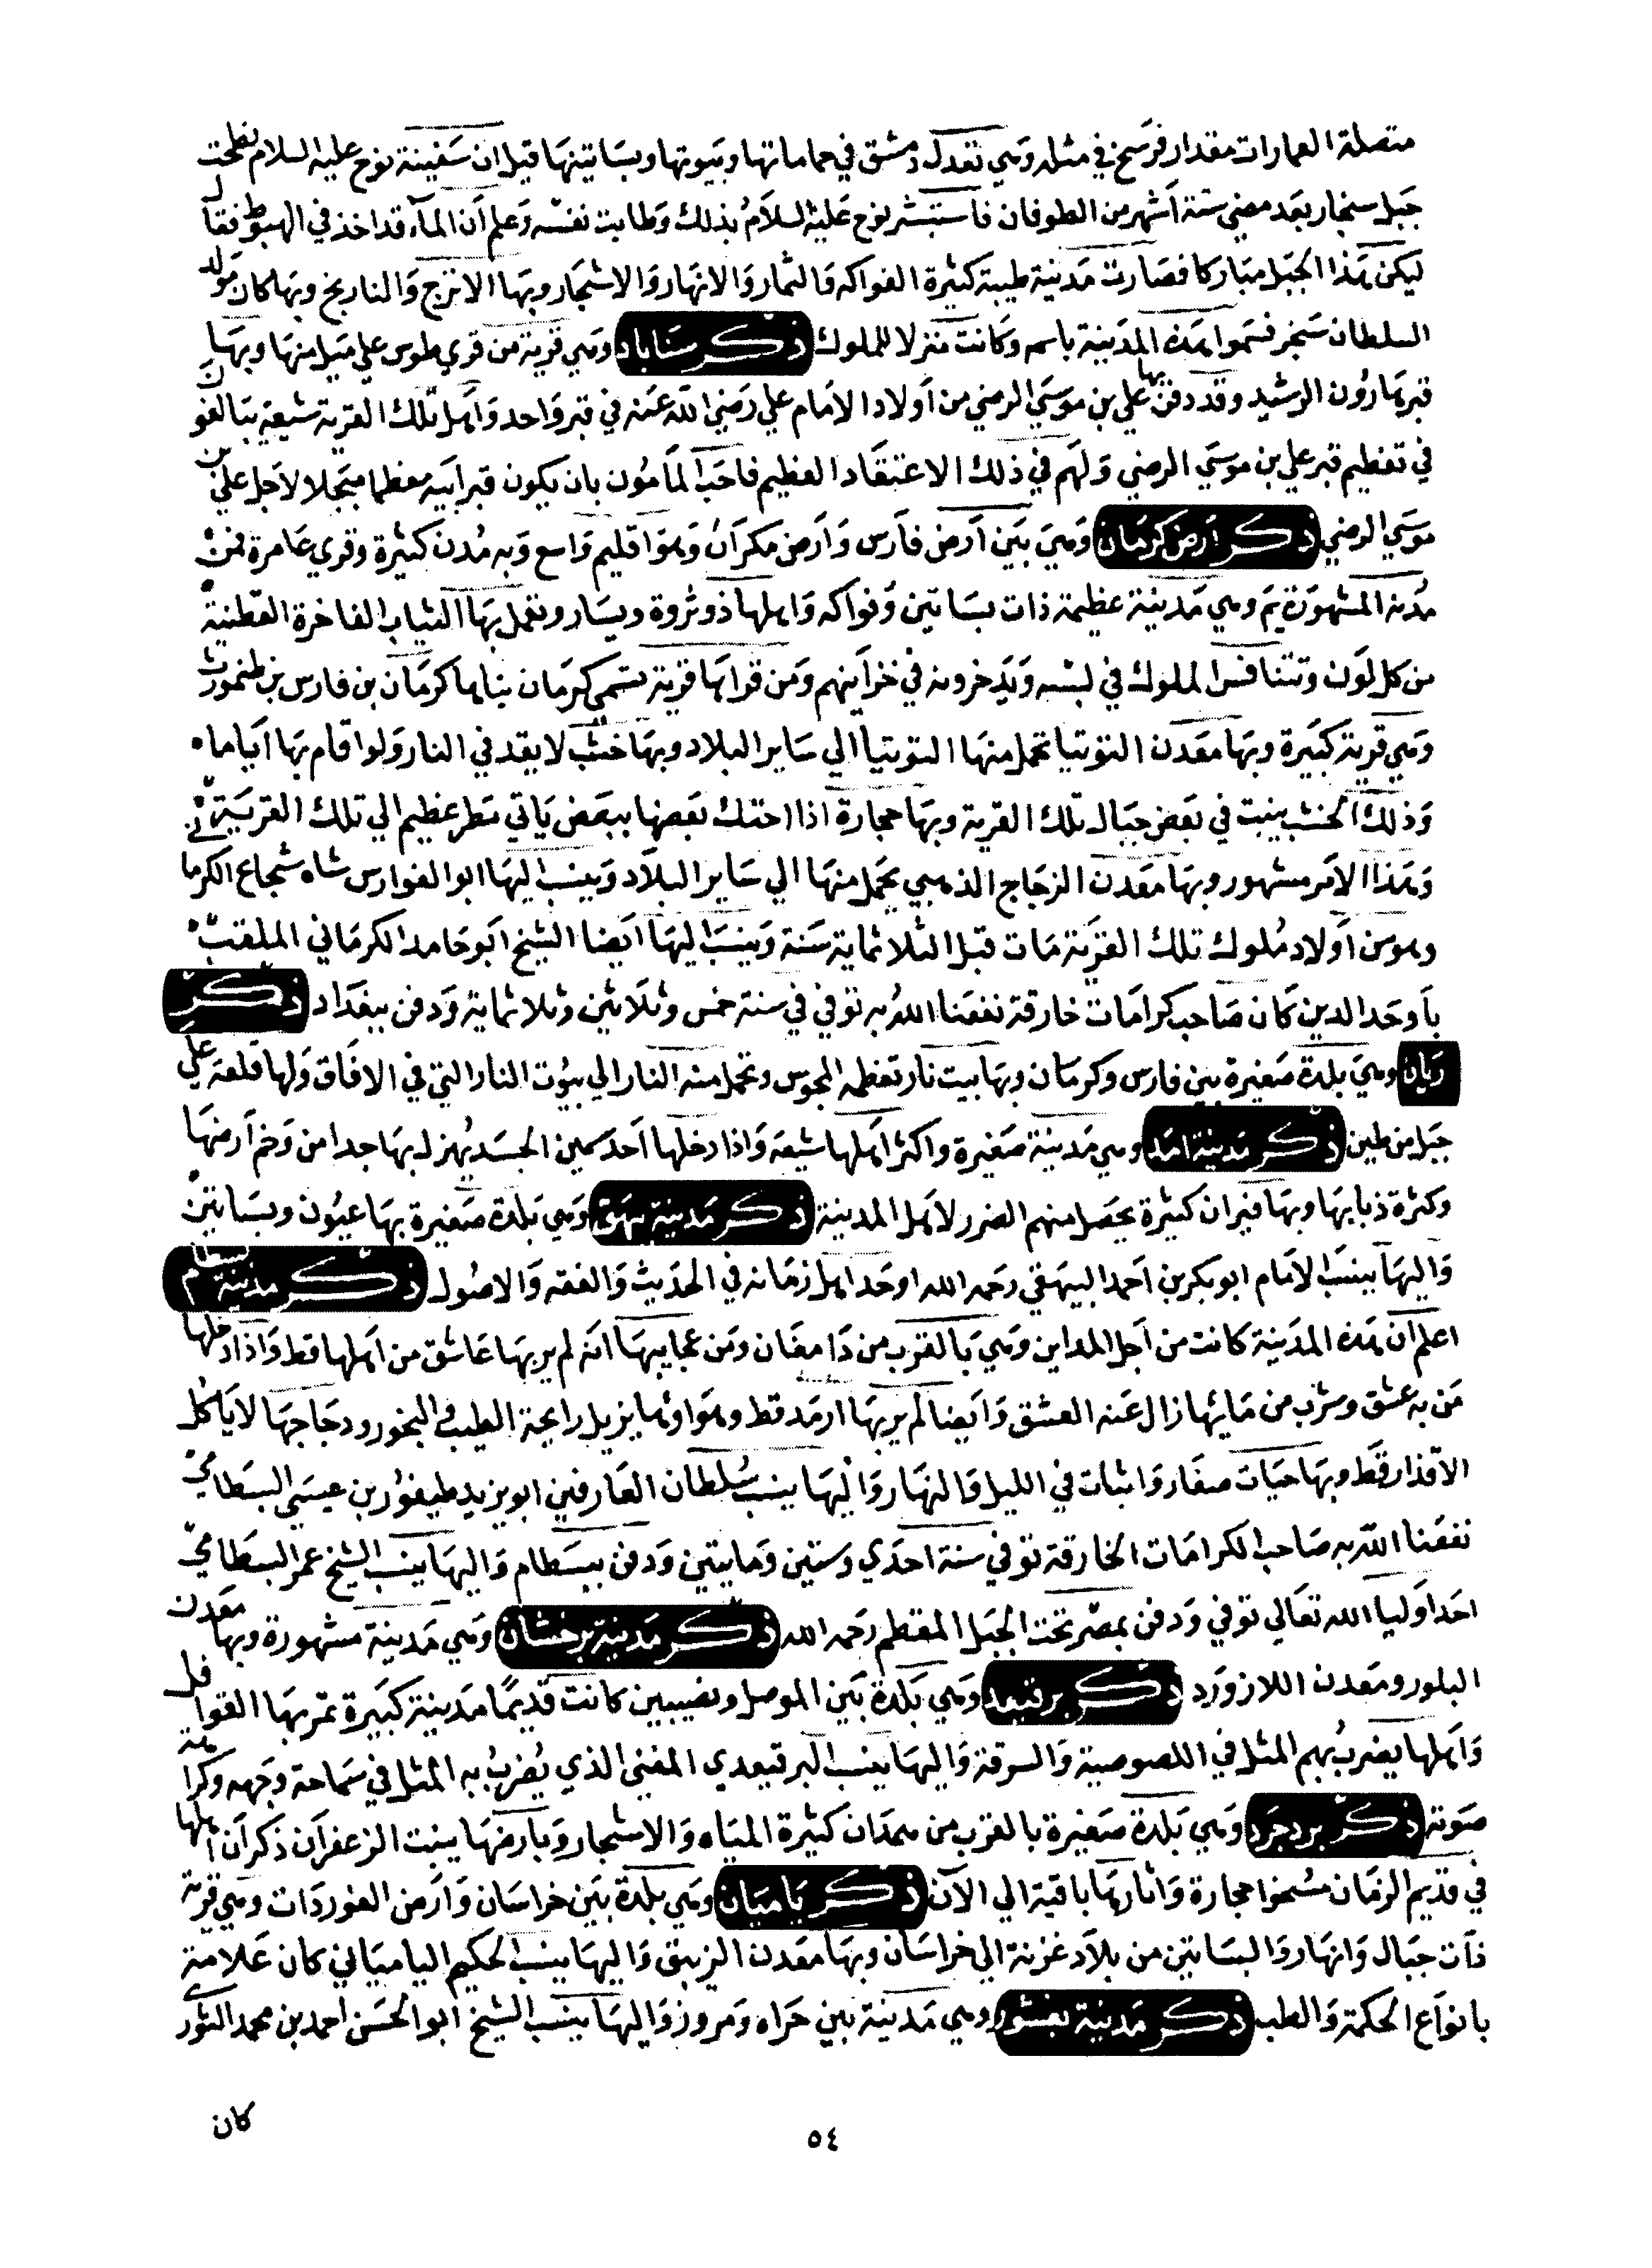 متصلة العمارات مقدار فرسخ في مثله وهي تعدل دمشق في حماماتها وبيوتها وبساتينها قيل ان سفينة نوح عليه السلام نطحت
جبل سنجار بعد مضي ستة اشهر من الطوفان فاستبشر نوح عليه السلام بذلك وطابت نفسه وعلم ان المآء قد اخذ في الهبوط فقال
ليكن هذا الجبل مباركا فصارت مدينة طيبة كثيرة الفواكه والثمار والانهار والاشجار وبها الاترج والنارنج وبها كان مولد
السلطان سنجر فسموا هذه المدينة باسمه وكانت منزلا للملوك ذكر سناباد وهي قرية من قري طوس علي ميل منها وبها
قبر هارون الرشيد وقد دفن بها علي بن موسي الرضي من اولاد الامام علي رضي الله عنه في قبر واحد واهل تلك القرية شيعة يبالغون
في تعظيم قبر علي بن موسي الرضي ولهم في ذلك الاعتقاد العظيم فاحب المأمون بان يكون قبر ابيه معظما مبجلا لاجل علي بن
موسي الرضي ذكر ارض كرمان وهي بين ارض فارس وارض مكران وهو اقليم واسع وبه مدن كثيرة وقري عامرة فمن
مدنه المشهورة بم وهي مدينة عظيمة ذات بساتين وفواكه واهلها ذو ثروة ويسار وتعمل بها الثياب الفاخرة القطنية
من كل لون وتتنافس الملوك في لبسه ويدخرونه في خزاينهم ومن قراها قرية تسمي كرمان بناها كرمان بن فارس بن طهمورث
وهي قرية كبيرة وبها معدن التوتيا تحمل منها التوتيا الي ساير البلاد وبها خشب لا يقد في النار ولو اقام بها اياما
وذلك الخشب ينبت في بعض جبال تلك القرية وبها حجارة اذا احتك بعضها ببعض ياتي مطر عظيم الي تلك القرية
وهذا الامر مشهور وبها معدن الزجاج الذهبي يحمل منها الي ساير البلاد وينسب اليها ابو الفوارس شاه شجاع الكرماني
وهو من اولاد ملوك تلك القرية مات قبل الثلاثماية سنة وينسب اليها ايضا الشيخ ابو حامد الكرماني الملقب
باوحد الدين كان صاحب كرامات خارقة نفعنا الله به توفي في سنة خمس وثلاثين وثلاثماية ودفن ببغداد ذكر
ويان وهي بلدة صغيرة بين فارس وكرمان وبها بيت نار تعظمه المجوس وتحمل منه النار الي بيوت النار التي في الافاق ولها قلعة علي
جبل من طين ذكر مدينة امد وهي مدينة صغيرة واكثر اهلها شيعة واذا دخلها احد سمين الجسد يهزل بها جدا من وخم ارضها
وكثرة ذبابها وبها فيران كثيرة يحصل منهم الضرر لاهل المدينة ذكر مدينة بيهق وهي بلدة صغيرة بها عيون وبساتين
واليها ينسب الامام ابو بكر بن احمد البيهقي رحمه الله اوحد اهل زمانه في الحديث والفقه والاصول ذكر مدينة بسطام
اعلم ان هذه المدينة كانت من اجل المداين وهي بالقرب من دامغان ومن عجايبها انه لم ير بها عاشق من اهلها قط واذا دخلها
من به عشق وشرب من مائها زال عنه العشق وايضا لم ير بها ارمد قط وهواؤها يزيل رايحة الطيب والبخور ودجاجها لا ياكل
الاقذار قط وبها حيات صغار واثبات في الليل والنهار واليها ينسب سلطان العارفين ابو يزيد طيفور بن عيسي البسطامي
نفعنا الله به صاحب الكرامات الخارقة توفي سنة احدي وستين ومايتين ودفن ببسطام واليها ينسب الشيخ عمر البسطامي
احد اوليا الله تعالي توفي ودفن بمصر تحت الجبل المقطم رحمه الله ذكر مدينة بدخشان وهي مدينة مشهورة وبها معدن
البلور ومعدن اللازورد ذكر برقعيد وهي بلدة بين الموصل ونصيبين كانت قديما مدينة كبيرة تمر بها القوافل
واهلها يضرب بهم المثل في اللصوصية والسرقة واليها ينسب البرقعيدي المغني الذي يضرب به المثل في سماحة وجهه وكراهة
صوته ذكر بروجرد وهي بلدة صغيرة بالقرب من همدان كثيرة المياه والاشجار وبارضها ينبت الزعفران ذكر ان اهلها
في قديم الزمان مسخوا حجارة واثارها باقية الي الآن ذكر باميان وهي بلدة بين خراسان وارض الغور دات وهي قرية
ذات جبال وانهار والبساتين من بلاد غزنة الي خراسان وبها معدن الزيبق واليها ينسب الحكيم الياميانى كان علامة
بانواع الحكمة والطب ذكر مدينة بغشور وهي مدينة بين حراه ومروز واليها ينسب الشيخ ابو الحسن احمد بن محمد النوري
كان
٥٤